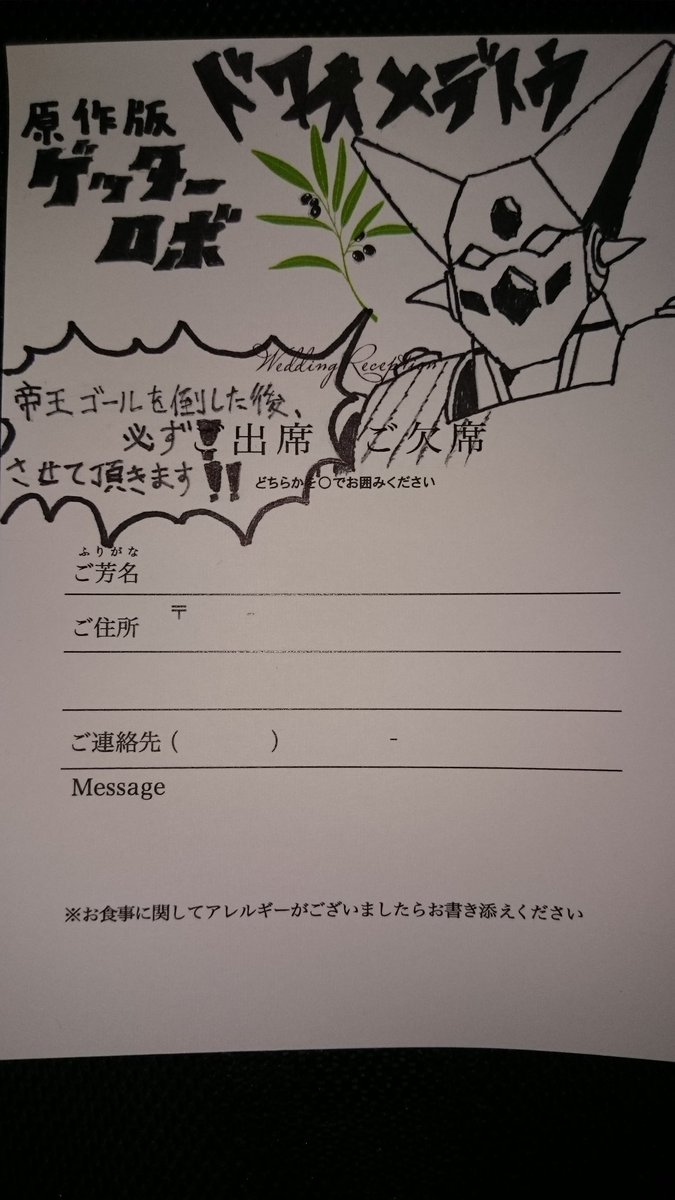 ドワオメデトウ
原作版
ゲッター
ロボ
Wedding Reception
帝王ゴールを倒した後、
必ずご出席 ご欠席
させて頂きます!!
どちらかを○でお囲みください
ふりがな
ご芳名
ご住所 〒 -
ご連絡先 ( ) -
Message
※お食事に関してアレルギーがございましたらお書き添えください